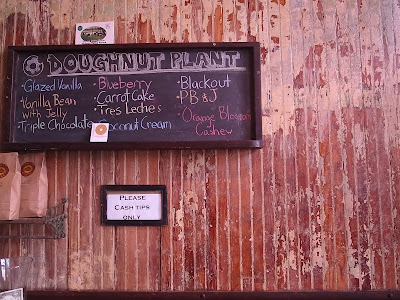 DOUGHNUT PLANT
Glazed Vanilla
Vanilla Bean
with Jelly
Triple Chocolate
Blueberry
Carrot Cake
Tres Leches
Coconut Cream
Blackout
PB & J
Orange Blossom
Cashew
PLEASE
CASH TIPS
ONLY